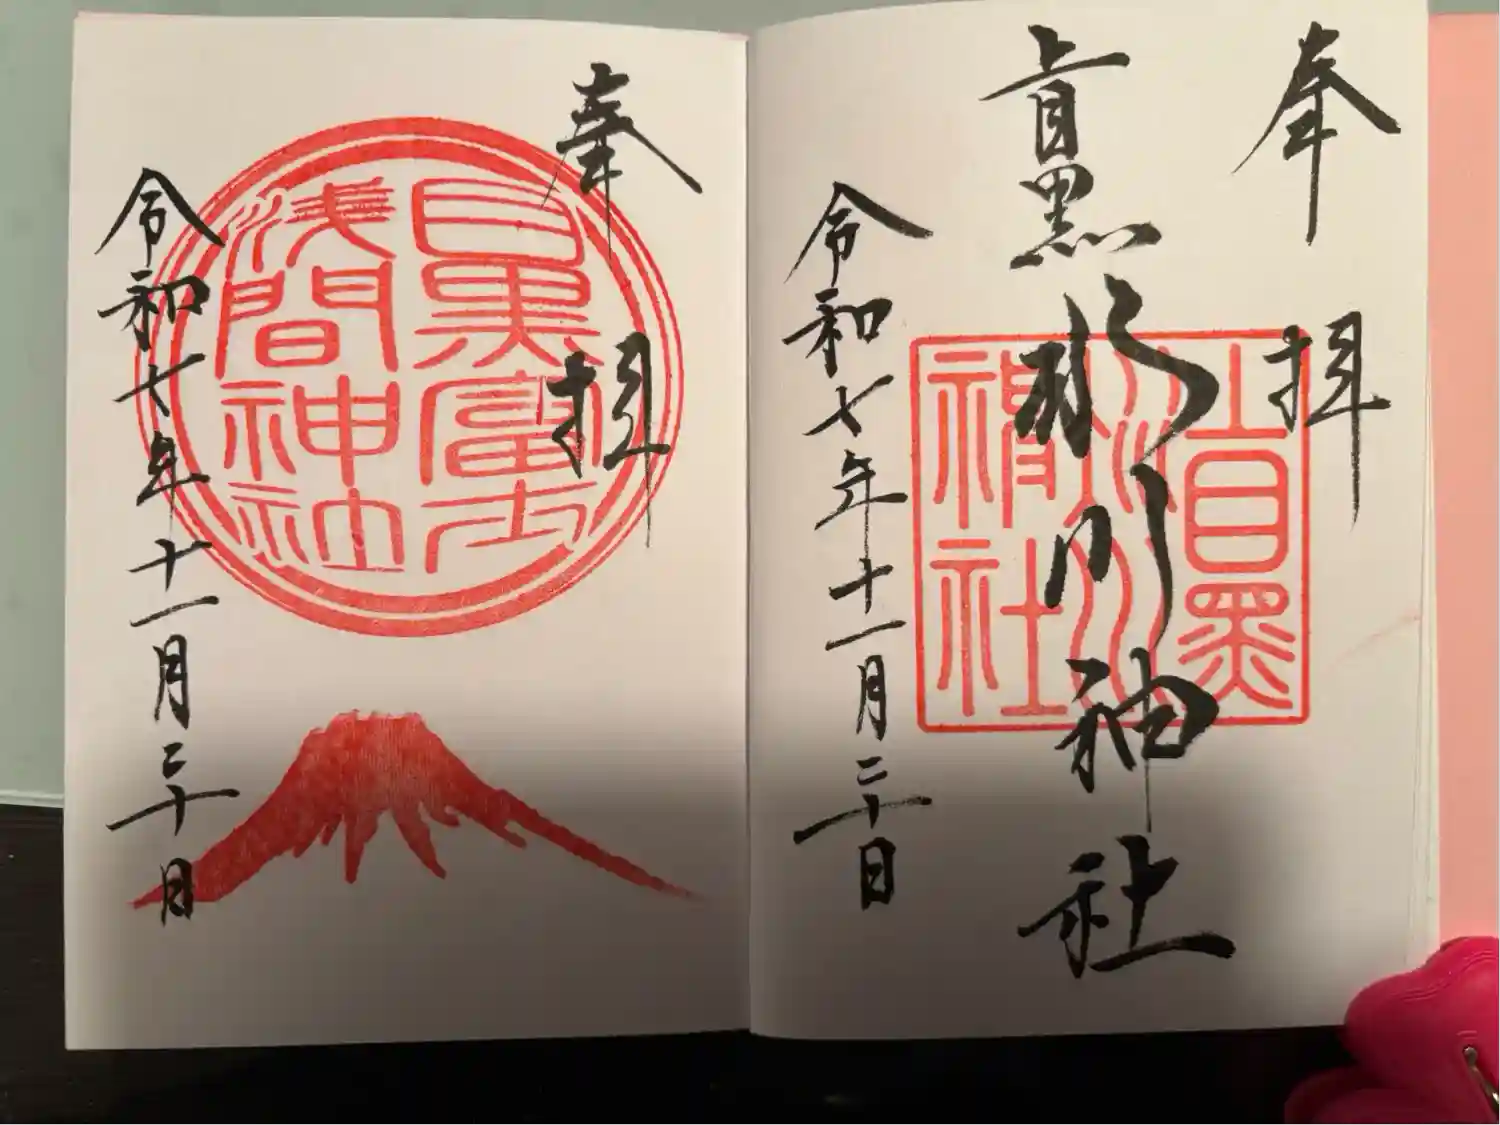 奉拝
上目黒氷川神社
上目黒氷川神社
令和七年十一月二十日
奉拝
目黒富士浅間神社
令和七年十一月二十日